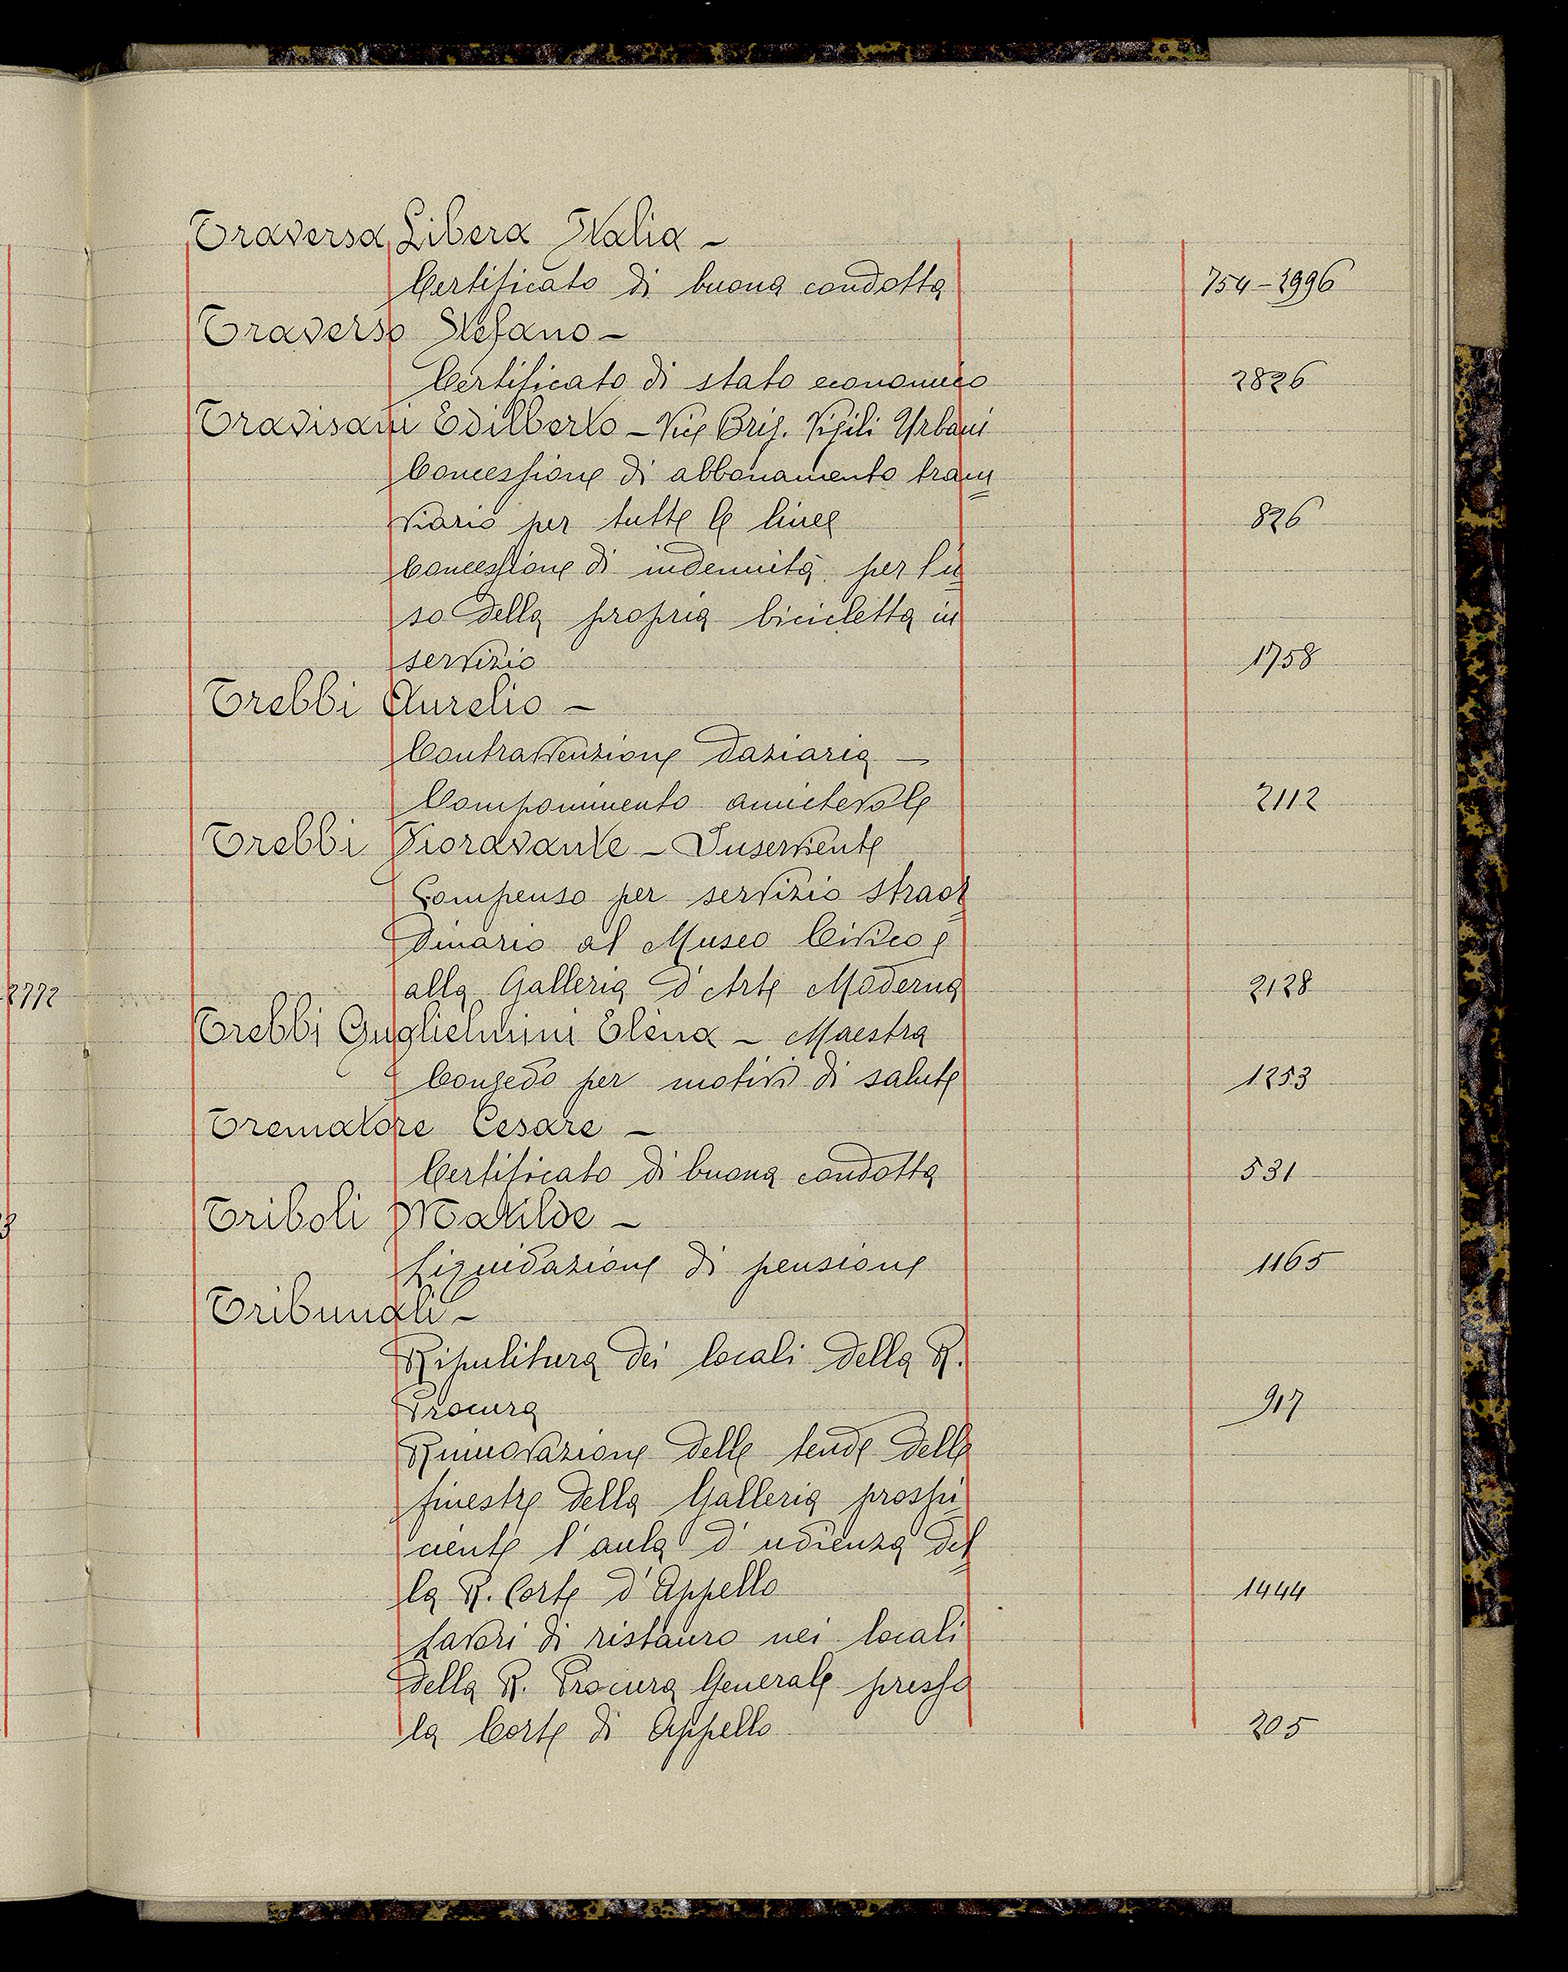 Traversa Libera Italia –
Certificato di buona condotta 754 – 2996
Traverso Stefano –
Certificato di stato economico 2826
Travisani Edilberto – Vice Brig. Vigili Urbani
Concessione di abbonamento tram=
viario per tutte le linee 826
Concessione di indennità per l'u=
so della propria bicicletta in
servizio 1758
Trebbi Aurelio –
Contravvenzione daziaria –
Componimento amichevole 2112
Trebbi Fioravante – Inserviente
Compenso per servizio straor=
dinario al Museo Civico e
alla Galleria d'Arte Moderna 2128
2772
Trebbi Guglielmini Elena – Maestra
Congedo per motivi di salute 1253
Trematore Cesare –
Certificato di buona condotta 531
Triboli Matilde –
3
Liquidazione di pensione 1165
Tribunali –
Ripulitura dei locali della R.
Procura 917
Rinnovazione delle tende delle
finestre della Galleria prospi=
ciente l'aula d'udienza del=
la R. Corte d'Appello 1444
Lavori di ristauro nei locali
della R. Procura Generale presso
la Corte di Appello 205